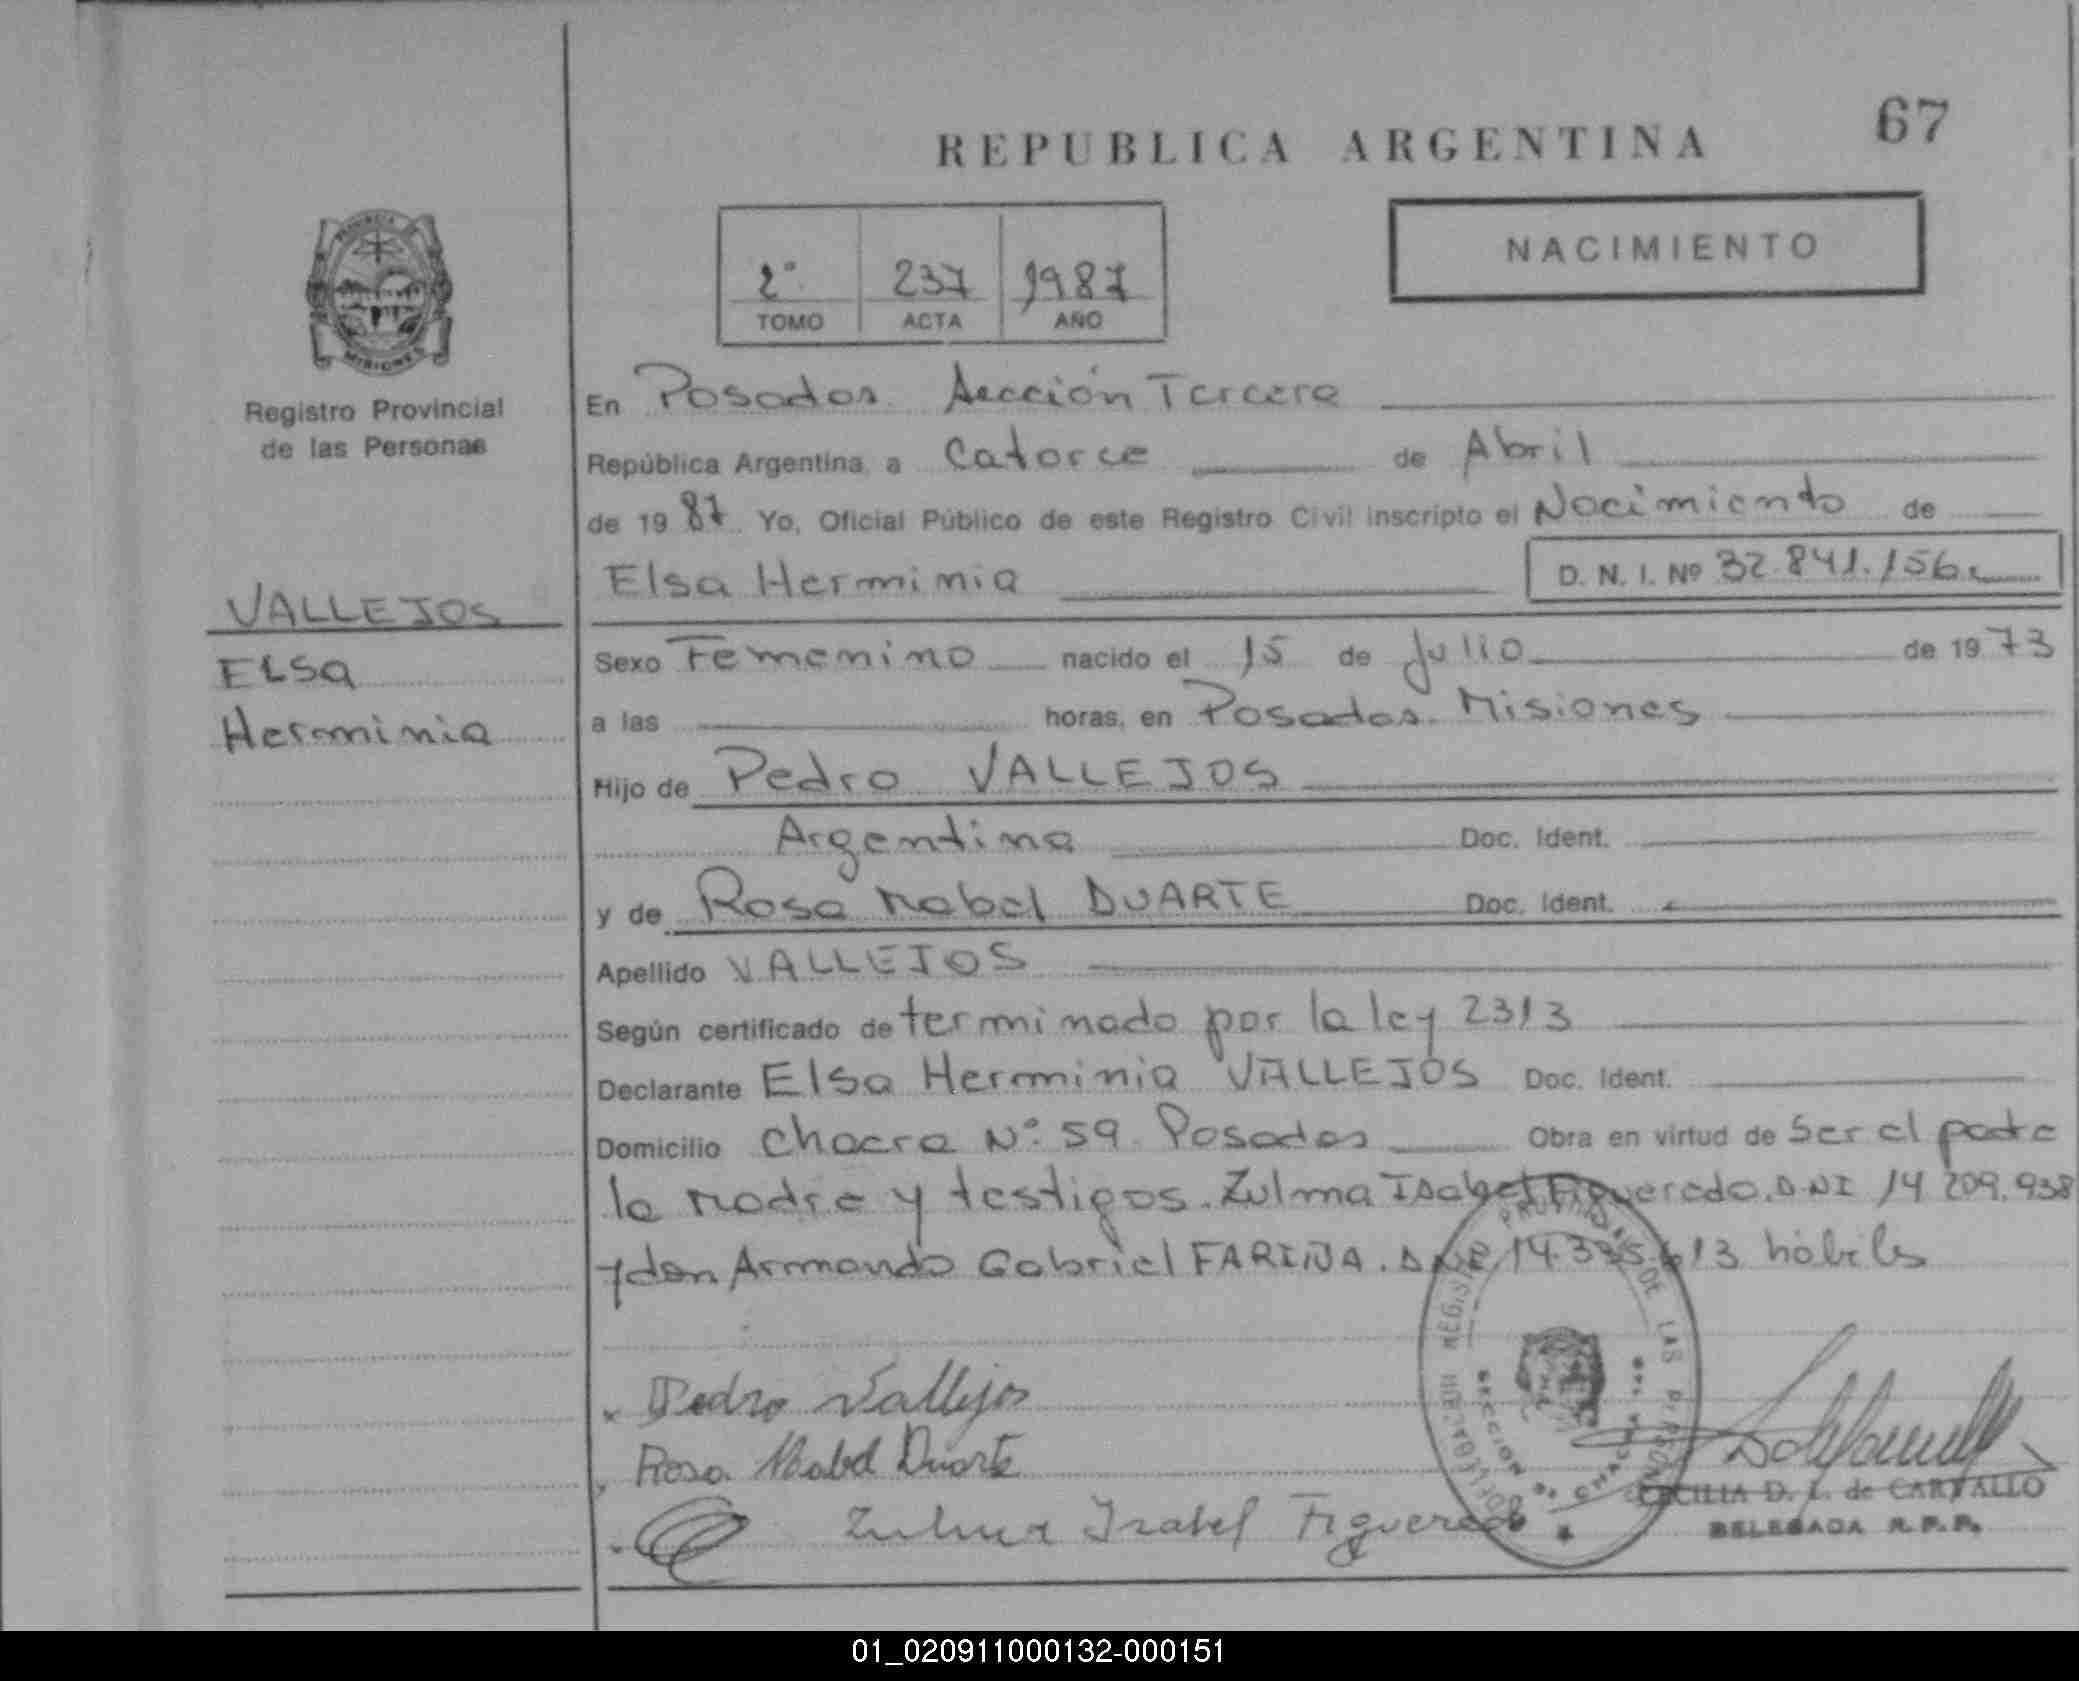 67
REPUBLICA ARGENTINA
NACIMIENTO
2° 237 1987
TOMO ACTA AÑO
PROVINCIA
MISIONES
Registro Provincial
de las Personas
VALLEJOS
ELSa
Herminia
En Posadas Sección Tercera
República Argentina, a Catorce de Abril
de 1987 Yo, Oficial Público de este Registro Civil inscripto el Nacimiento de
Elsa Herminia D. N. I. Nº 32.841.156
Sexo Femenino nacido el 15 de Julio de 1973
a las horas, en Posadas Misiones
Hijo de Pedro VALLEJOS
Argentina Doc. Ident.
y de Rosa Mabel DUARTE Doc. Ident.
Apellido VALLEJOS
Según certificado determinado por la ley 2313
Declarante Elsa Herminia VALLEJOS Doc. Ident.
Domicilio Chacra N° 59 Posadas Obra en virtud de Ser el padre
la Madre y testigos. Zulma Isabel Figueredo. DNI 14 209.938
y don Armando Gabriel FARIÑA. DNI 14.335.613 hábiles
Pedro Vallejos
Rosa Mabel Duarte
Zulma Isabel Figueredo
REGISTRO PROVINCIAL DE LAS PERSONAS
SECCION
CECILIA D. L. de CARVALLO
DELEGADA R.P.P.
01_020911000132-000151